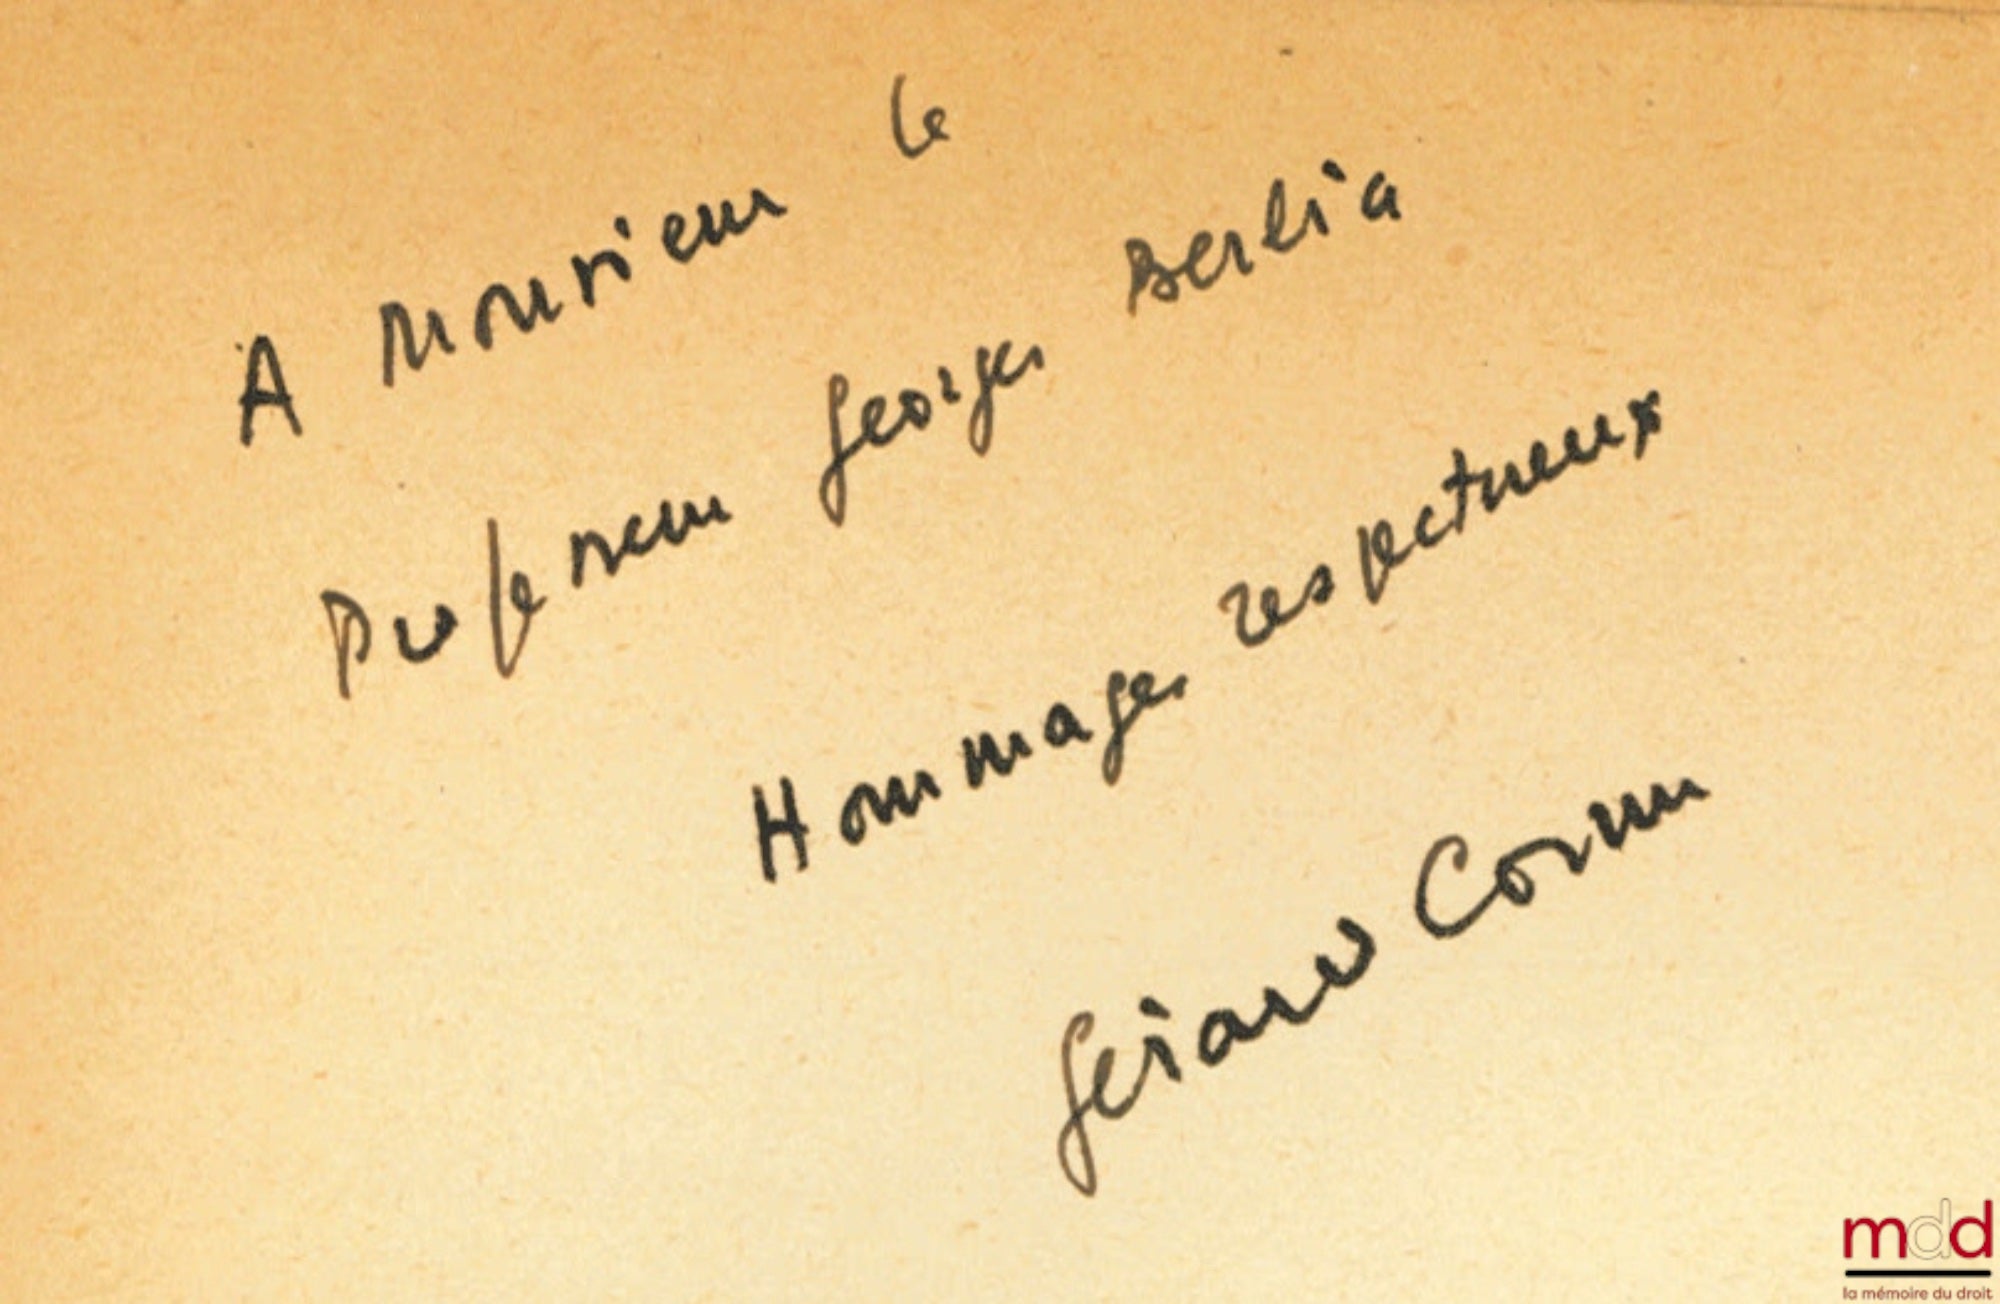 A Monsieur le
Professeur Georges Berlia
Hommages respectueux
Gérard Cornu
mdd
la mémoire du droit